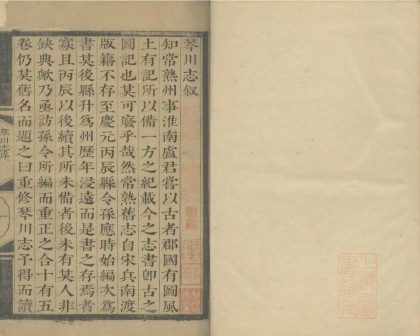 琴川志叙
知常熟州事淮南盧君嘗以古者郡國有圖風
土有記所以備一方之紀載今之志書卽古之
圖記也其可廢乎哉然常熟舊志自宋兵南渡
版籍不存至慶元丙辰縣令孫應時始編次爲
書其後縣升爲州歷年浸遠而是書之存焉者
寡且丙辰以後續其所未備者後未有其人非
缺典歟乃亟訪孫令所編而重正之合十有五
卷仍其舊名而題之曰重修琴川志予得而讀